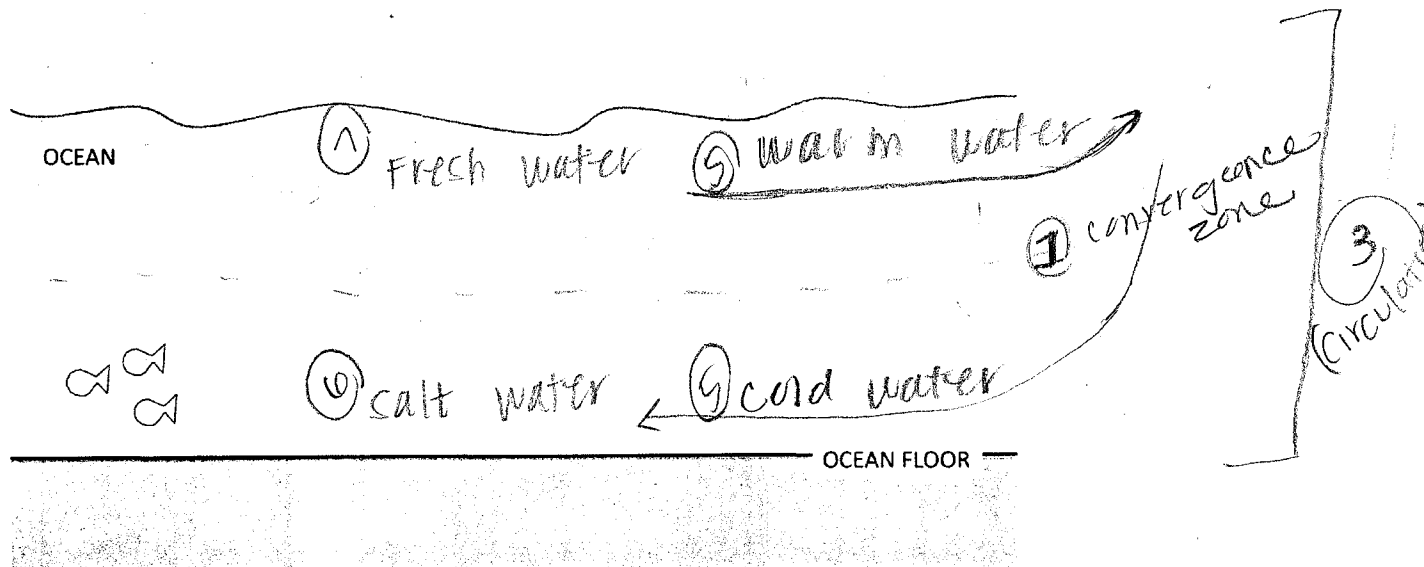 OCEAN
Fresh water
5 warm water
1 convergeence
zone
3
6 salt water
5 cold water
OCEAN FLOOR